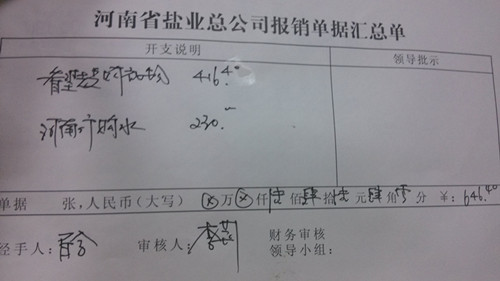 河南省盐业总公司报销单据汇总单
开支说明 领导批示
看望 购物 416.40
河南 水 230.-
单据 张,人民币(大写) ⊗万⊗仟陆佰肆拾陆元肆角零分 ¥:646.40
经手人: 审核人:李 财务审核
领导小组: